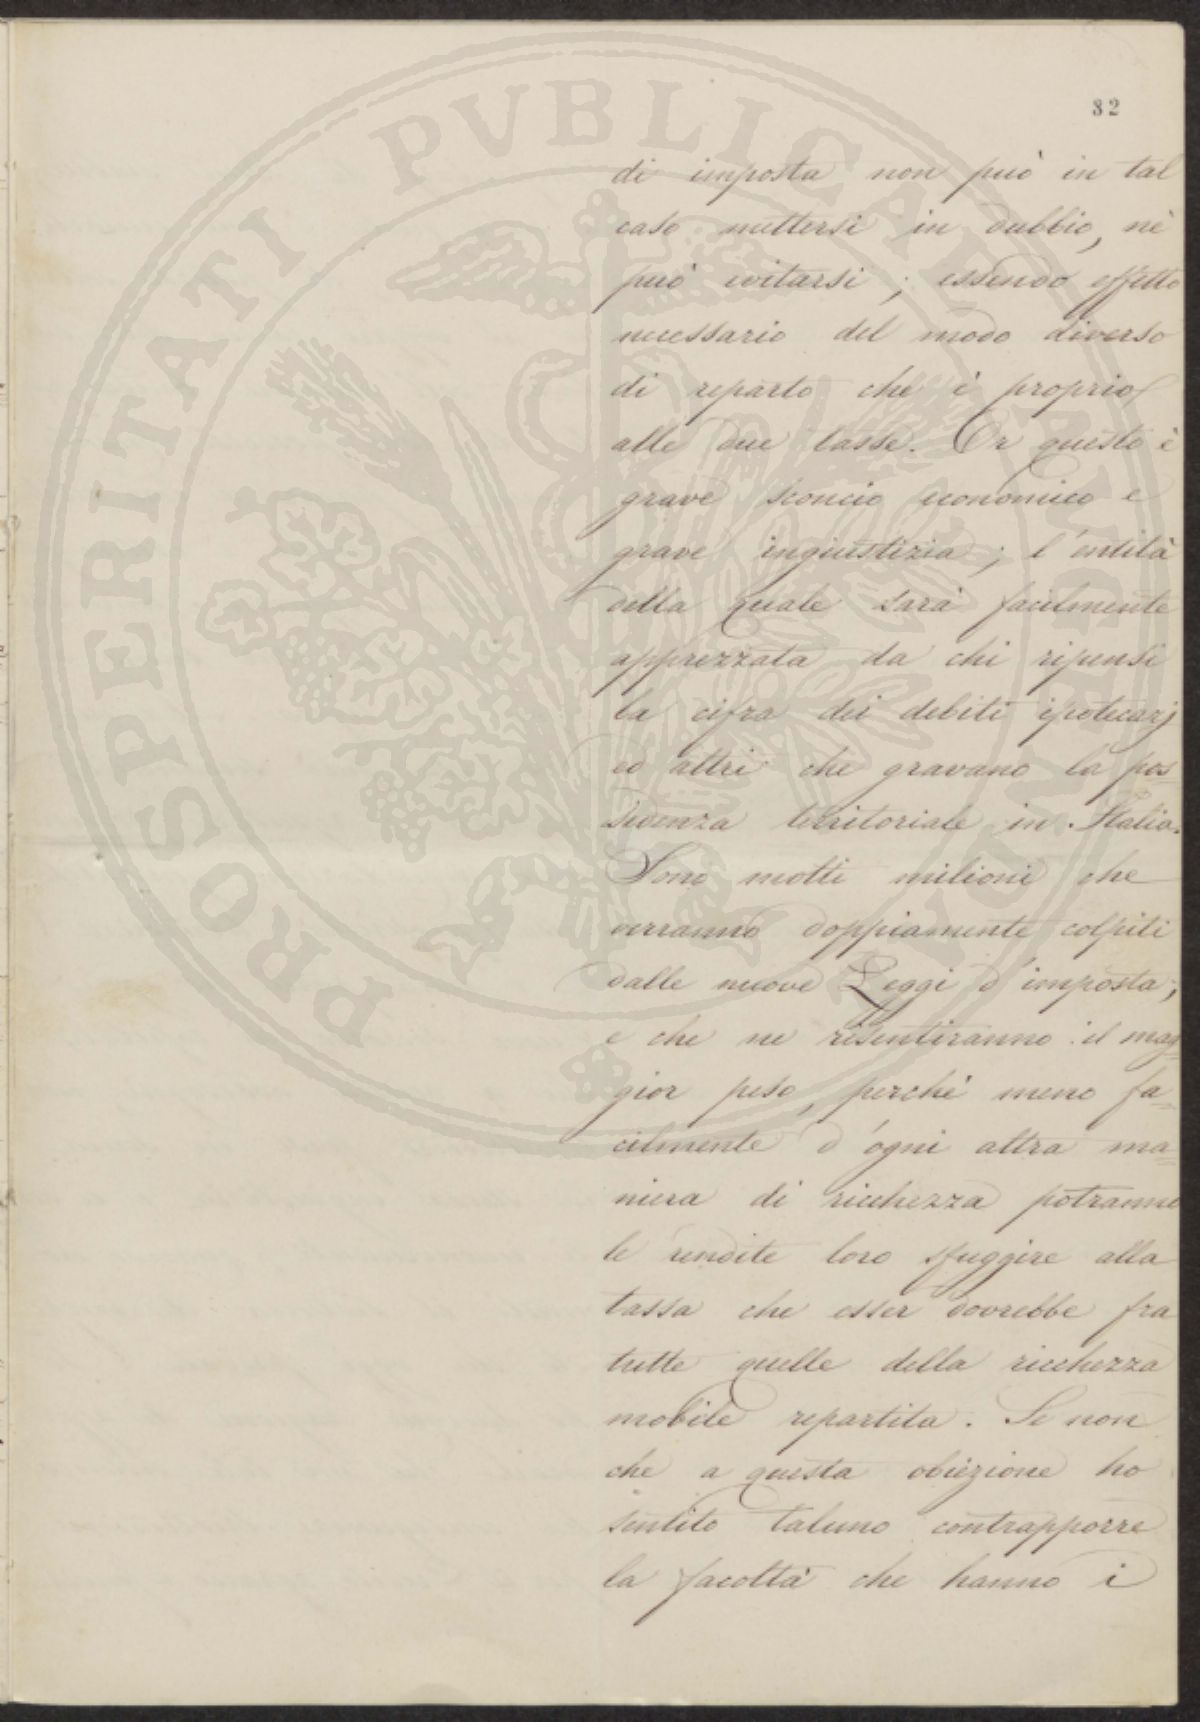 82
di imposta non può in tal
caso mettersi in dubbio, nè
può evitarsi; essendo effetto
necessario del modo diverso
di reparto che è proprio
alle due tasse. Or questo è
grave sconcio economico e
grave ingiustizia; l'entità
della quale sarà facilmente
apprezzata da chi ripensi
la cifra dei debiti ipotecarj
ed altri che gravano la pos=
sidenza territoriale in Italia.
Sono molti milioni che
verranno doppiamente colpiti
dalle nuove Leggi d'imposta;
e che ne risentiranno il mag=
gior peso, perchè meno fa=
cilmente d'ogni altra ma=
niera di ricchezza potranno
le rendite loro sfuggire alla
tassa che esser dovrebbe fra
tutte quelle della ricchezza
mobile repartita. Se non
che a questa obiezione ho
sentito taluno contrapporre
la facoltà che hanno i
PROSPERITATI PVBLICAE